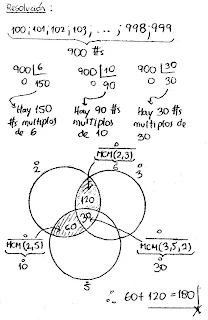 Resolución:
100; 101; 102; 103; ... ; 998; 999
900 #s
900 | 6    900 | 10    900 | 30
0 150    0 90    0 30
Hay 150    Hay 90 #s    Hay 30 #s
#s múltiplos    múltiplos    múltiplos
de 6    de 10    de 30
MCM(2,3)
2    6    3
120
30
60
MCM(2,5)    MCM(3,5,2)
10    30
5
∴ 60+120=180